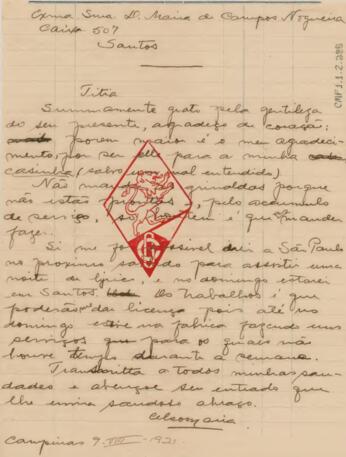 Exma Snra D. Maria de Campos Nogueira
Caixa 507
Santos
CMF1.1.2.286
Titia
Summamente grato pela gentileza
do seu presente, agradeço de coração;
porem maior é o meu agradeci-
mento, por ser elle para a minha
casinha, (salvo mal entendido)
Não grinaldas porque
não estão promptas, pelo accumulo
de serviço, só é que mandei
fazer.
Si me fôr possivel irei a São Paulo
no proximo sabbado para assistir uma
noite de lyrico, e no domingo estarei
em Santos. Os trabalhos é que
poderão dar licença pois até no
domingo estive na fabrica fazendo uns
serviços para os quaes não
houve tempo durante a semana.
Transmitta a todos minhas sau-
dades e abençoe seu entiado que
lhe envia saudoso abraço.
Celso Maria
Campinas 9-VIII-1921.